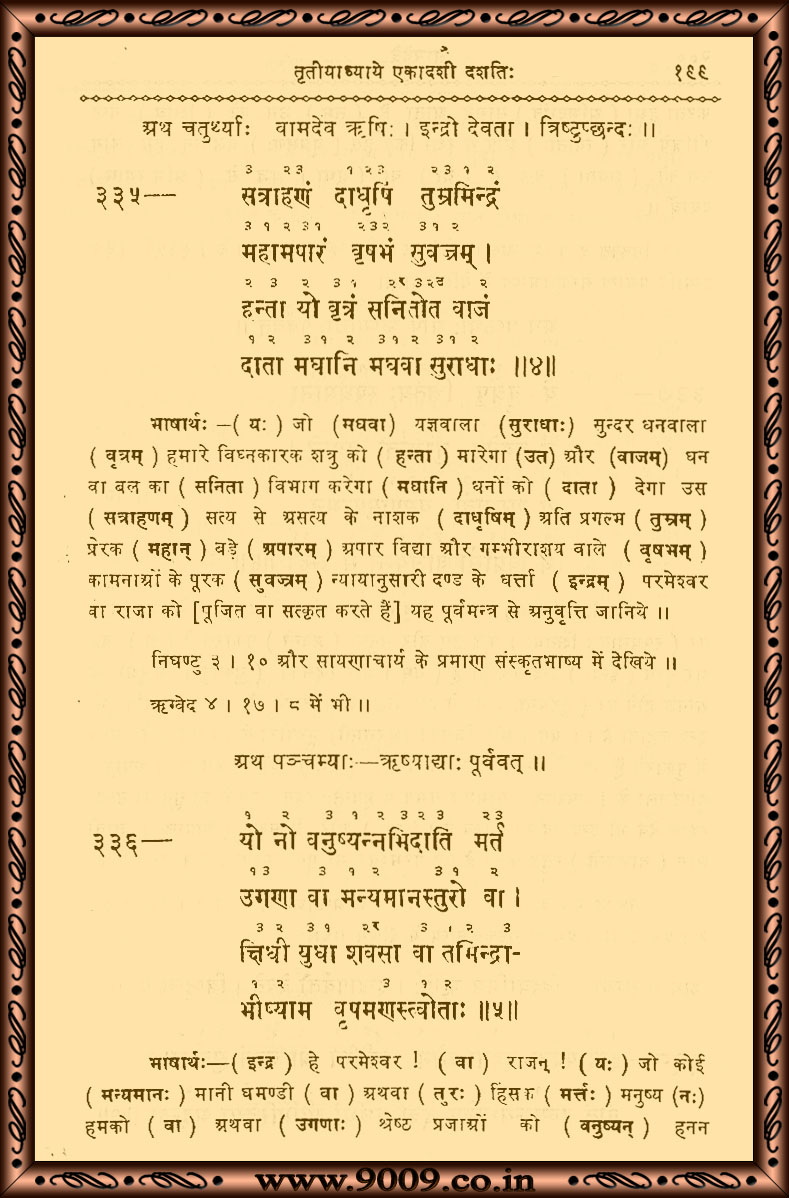 तृतीयाध्याये एकादशी दशतिः १९९
अथ चतुर्थ्याः वामदेव ऋषिः । इन्द्रो देवता । त्रिष्टुप्छन्दः ॥
३ २३ १ २३ २ ३ १ २
३३५— सत्राहणं दाधृषिं तुम्रमिन्द्रं
३ १ २ ३१ २३२ ३१ २
महामपारं वृषभं सुवज्रम् ।
२ ३ २ ३ १ २र ३२उ २
हन्ता यो वृत्रं सनितोत वाजं
१ २ ३१ २ ३१२ ३१ २
दाता मघानि मघवा सुराधाः ॥४॥
भाषार्थः -( यः ) जो (मघवा) यज्ञवाला (सुराधाः) सुन्दर धनवाला
( वृत्रम् ) हमारे विघ्नकारक शत्रु को ( हन्ता ) मारेगा (उत) और (वाजम्) धन
वा बल का ( सनिता ) विभाग करेगा ( मघानि ) धनों को ( दाता ) देगा उस
( सत्राहणम् ) सत्य से असत्य के नाशक ( दाधृषिम् ) अति प्रगल्भ ( तुम्रम् )
प्रेरक ( महान् ) बड़े ( अपारम् ) अपार विद्या और गम्भीराशय वाले ( वृषभम् )
कामनाओं के पूरक ( सुवज्रम् ) न्यायानुसारी दण्ड के धर्त्ता ( इन्द्रम् ) परमेश्वर
वा राजा को [पूजित वा सत्कृत करते हैं] यह पूर्वमन्त्र से अनुवृत्ति जानिये ॥
निघण्टु ३ । १० और सायणाचार्य के प्रमाण संस्कृतभाष्य में देखिये ॥
ऋग्वेद ४ । १७ । ८ में भी ॥
अथ पञ्चम्याः—ऋष्याद्याः पूर्ववत् ॥
१ २ ३ १ २ ३ २ ३ २ ३
३३६— यो नो वनुष्यन्नभिदाति मर्त
१ ३ ३ १ २ ३ १ २
उगणा वा मन्यमानस्तुरो वा ।
३ २ ३१ २र ३ १ २ ३
क्षिधी युधा शवसा वा तमिन्द्रा-
१ २ ३ १ २
भीष्याम वृषमणस्त्वोताः ॥५॥
भाषार्थः—( इन्द्र ) हे परमेश्वर ! ( वा ) राजन् ! ( यः ) जो कोई
( मन्यमानः ) मानी घमण्डी ( वा ) अथवा ( तुरः ) हिंसक ( मर्त्तः ) मनुष्य (नः)
हमको ( वा ) अथवा ( उगणाः ) श्रेष्ठ प्रजाओं को ( वनुष्यन् ) हनन
www.9009.co.in